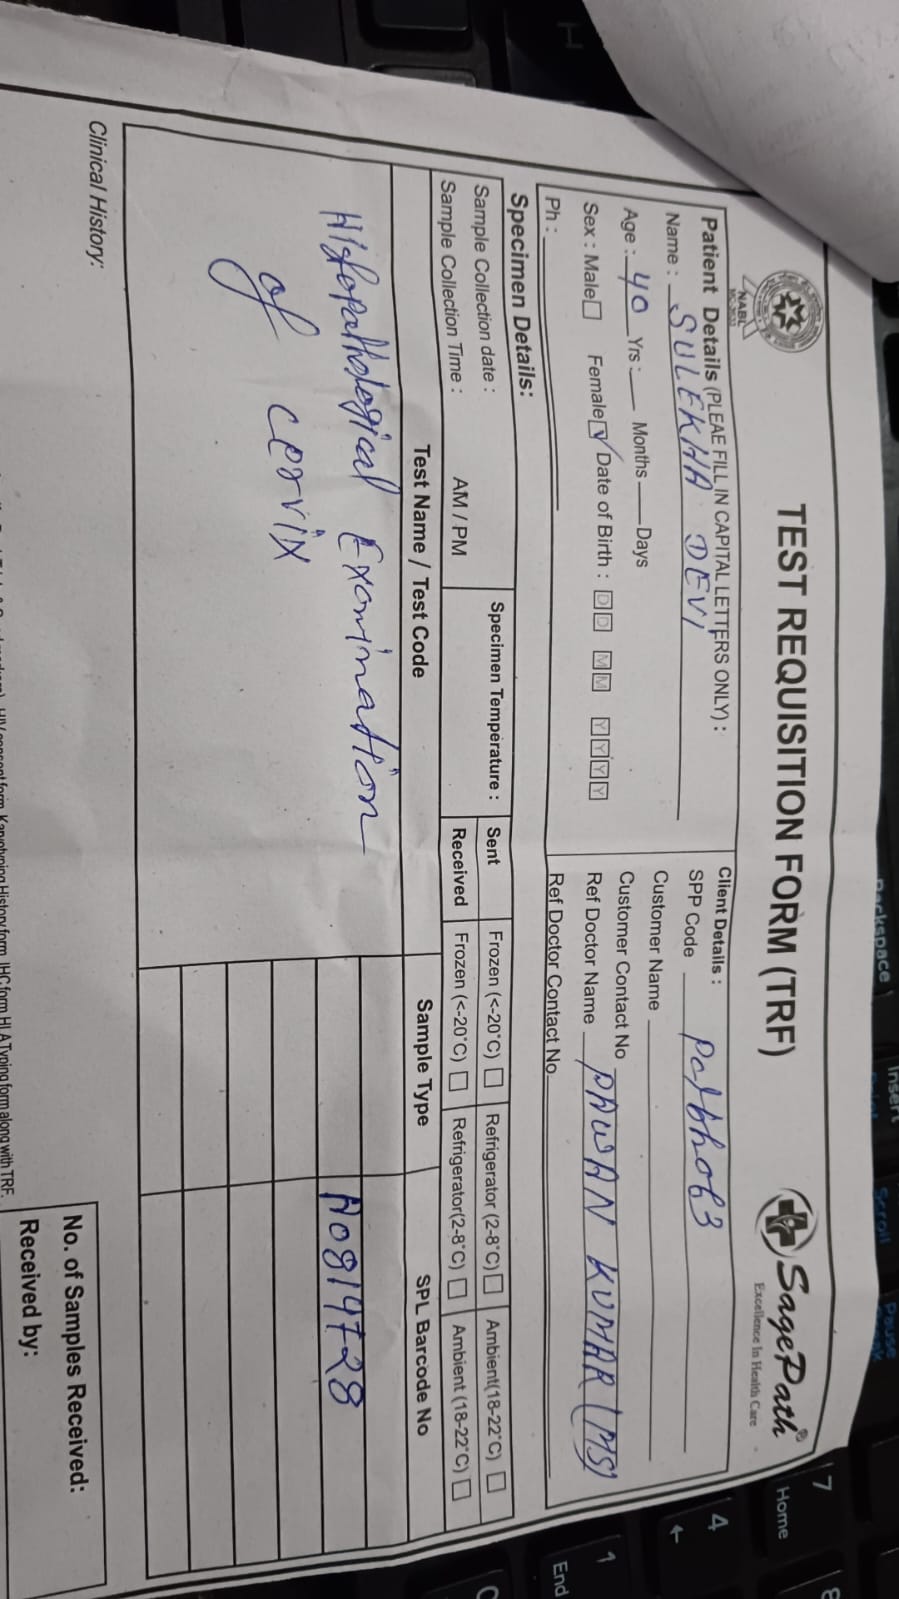 TEST REQUISITION FORM (TRF)
NABL
SagePath®
Excellence In Health Care
Patient Details (PLEAE FILL IN CAPITAL LETTERS ONLY) :
Name : SULEKHA DEVI
Age : 40 Yrs : Months Days
Sex : Male Female Date of Birth : DD MM YYYY
Ph :
Client Details :
SPP Code
Customer Name
Customer Contact No
Ref Doctor Name PAWAN KUMAR (MS)
Ref Doctor Contact No
Specimen Details:
Sample Collection date :
Sample Collection Time : AM / PM
Specimen Temperature :
Sent Frozen (<-20°C) Refrigerator (2-8°C) Ambient(18-22°C)
Received Frozen (<-20°C) Refrigerator(2-8°C) Ambient (18-22°C)
Test Name / Test Code Sample Type SPL Barcode No
Histopathological Examination A0819728
of cervix
Clinical History:
No. of Samples Received:
Received by:
HIV consent form, Karyotyping History form, IHC form HLA Typing form along with TRF.
Backspace
Insert
Scroll
Pause
7
Home
4
1
End
8